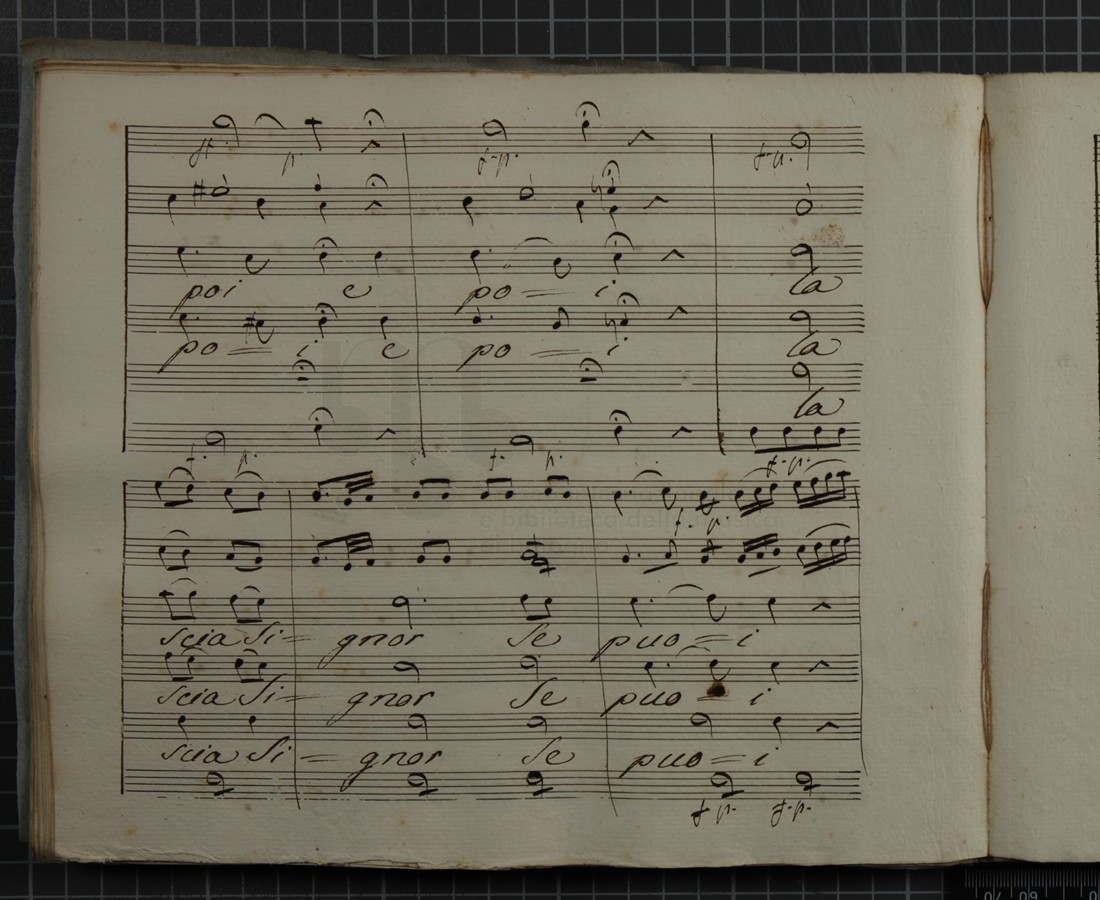 fp. p. f-p. f-p.
poi e po = i la
po = i e po = i la
la
f. p. f. p. f-p.
f. p.
scia Si = gnor Se puo = i
scia Si = gnor Se puo = i
scia Si = gnor Se puo = i
f p. f-p.